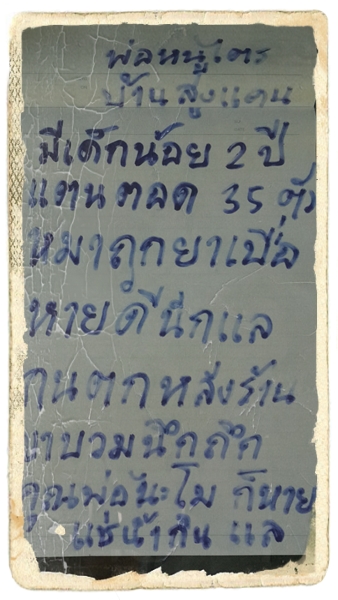 พ่อหนูไตร
บ้านสูงแคน
มีเด็กน้อย 2 ปี
แตนตอด 35 ตัว
หมาถูกยาเบื่อ
หายดีนักแล
คนตกหลังร้าน
ขาบวมนึกถึก
คูณพ่อนะโม ก็หาย
แช่น้ำกิน แล